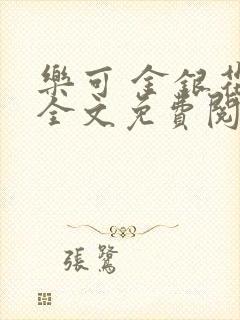 樂可 金銀花
全文免費閱
張鷺